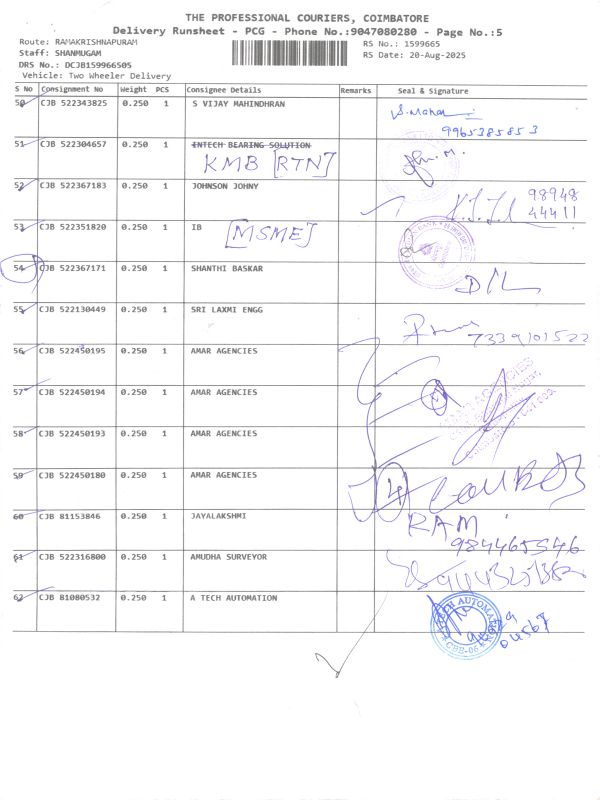 THE PROFESSIONAL COURIERS, COIMBATORE
Delivery Runsheet - PCG - Phone No.:9047080280 - Page No.:5
Route: RAMAKRISHNAPURAM
RS No.: 1599665
Staff: SHANMUGAM
RS Date: 20-Aug-2025
DRS No.: DCJB159966505
Vehicle: Two Wheeler Delivery
S No Consignment No Weight PCS Consignee Details Remarks Seal & Signature
50 CJB 522343825 0.250 1 S VIJAY MAHINDHRAN
9965385853
51 CJB 522304657 0.250 1 ENTECH BEARING SOLUTION
KMB [RTN]
52 CJB 522367183 0.250 1 JOHNSON JOHNY
98948
44411
53 CJB 522351820 0.250 1 IB [MSME]
54 CJB 522367171 0.250 1 SHANTHI BASKAR
D/L
55 CJB 522130449 0.250 1 SRI LAXMI ENGG
7339101522
56 CJB 522450195 0.250 1 AMAR AGENCIES
57 CJB 522450194 0.250 1 AMAR AGENCIES
58 CJB 522450193 0.250 1 AMAR AGENCIES
59 CJB 522450180 0.250 1 AMAR AGENCIES
4
60 CJB 81153846 0.250 1 JAYALAKSHMI RAM
984465546
61 CJB 522316800 0.250 1 AMUDHA SURVEYOR
62 CJB 81080532 0.250 1 A TECH AUTOMATION